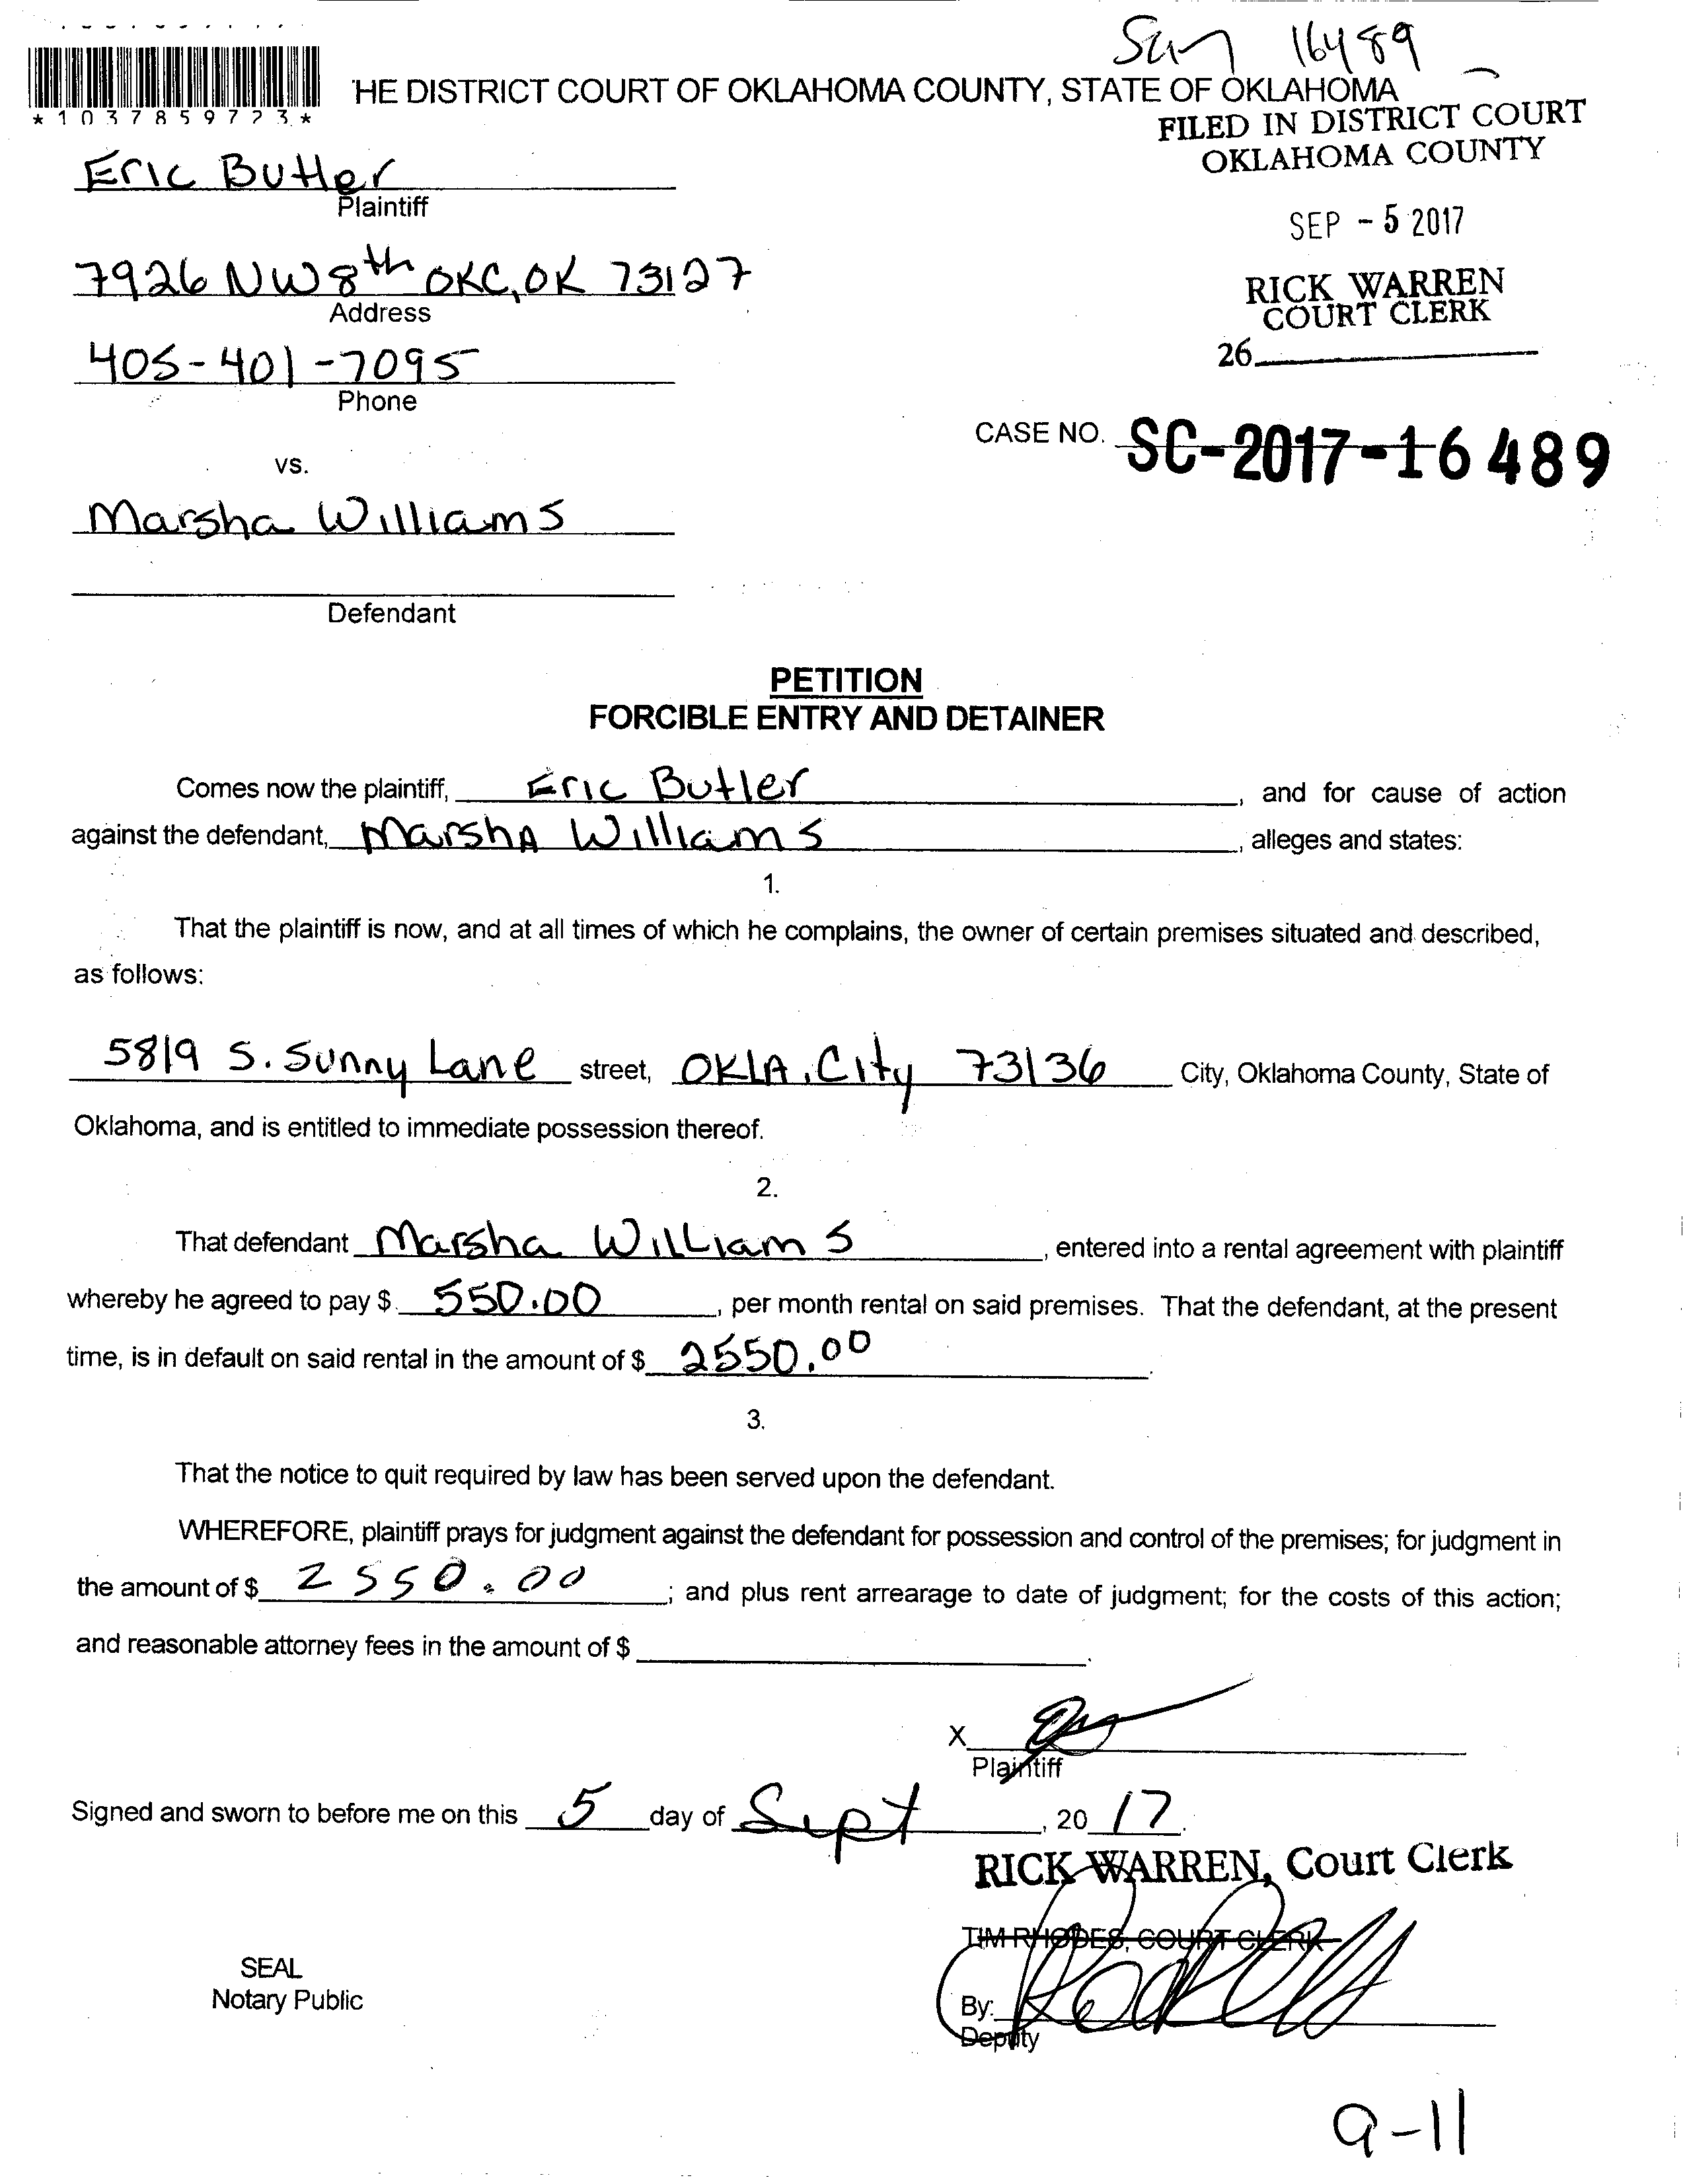 16489
*1037859723*
HE DISTRICT COURT OF OKLAHOMA COUNTY, STATE OF OKLAHOMA
FILED IN DISTRICT COURT
OKLAHOMA COUNTY
Eric Butler
Plaintiff
SEP - 5 2017
7926 NW 8th OKC, OK 73127
Address
RICK WARREN
COURT CLERK
26
405-401-7095
Phone
CASE NO. SC-2017-16489
vs.
Marsha Williams
Defendant
PETITION
FORCIBLE ENTRY AND DETAINER
Comes now the plaintiff, Eric Butler, and for cause of action
against the defendant, Marsha Williams, alleges and states:
1.
That the plaintiff is now, and at all times of which he complains, the owner of certain premises situated and described,
as follows:
5819 S. Sunny Lane street, OKLA. City 73136 City, Oklahoma County, State of
Oklahoma, and is entitled to immediate possession thereof.
2.
That defendant Marsha Williams, entered into a rental agreement with plaintiff
whereby he agreed to pay $ 550.00, per month rental on said premises. That the defendant, at the present
time, is in default on said rental in the amount of $ 2550.00.
3.
That the notice to quit required by law has been served upon the defendant.
WHEREFORE, plaintiff prays for judgment against the defendant for possession and control of the premises; for judgment in
the amount of $ 2550.00; and plus rent arrearage to date of judgment; for the costs of this action;
and reasonable attorney fees in the amount of $ .
X
Plaintiff
Signed and sworn to before me on this 5 day of Sept, 20 17.
RICK WARREN, Court Clerk
TIM RHODES, COURT CLERK
SEAL
Notary Public
By:
Deputy
9-11